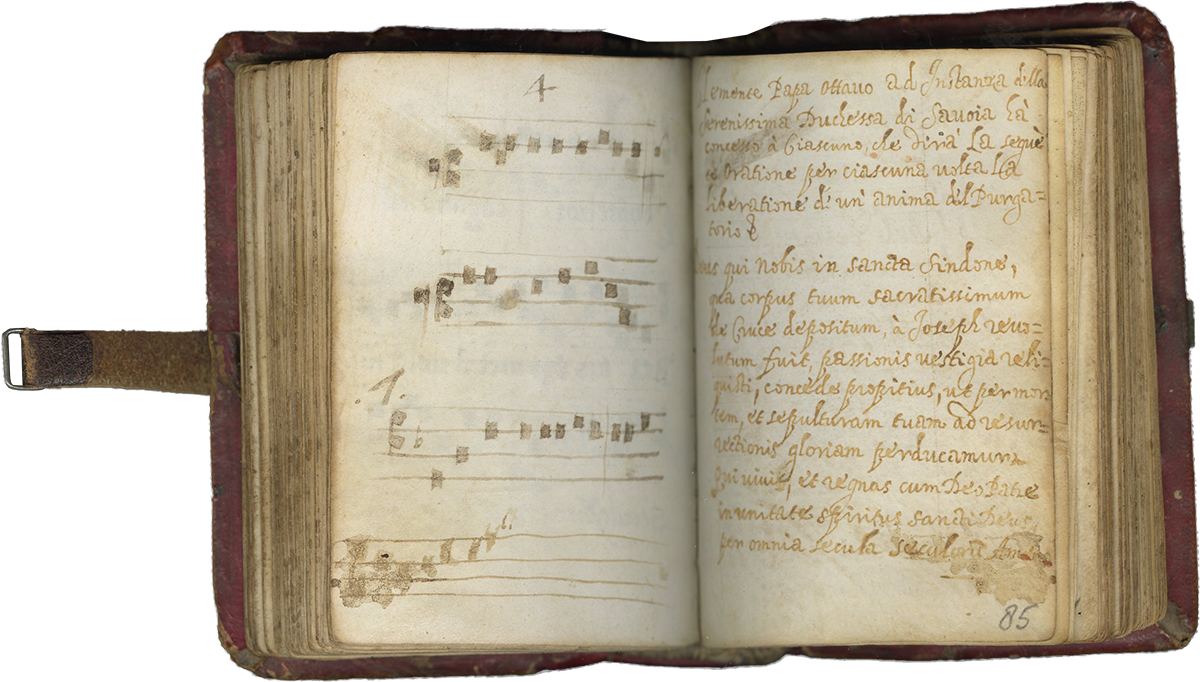 4
.1.
lemente Papa Ottauo ad Instanza della
Serenissima Duchessa di Sauoia hà
concesso à Ciascuno, che dirà La seguè
te Oratione per ciascuna uolta La
liberatione d' un' anima del Purga=
torio
eus qui Nobis in sancta Sindone,
qua corpus tuum sacratissimum
de Cruce depositum, à Joseph reuo=
lutum fuit, passionis vestigia reli=
quisti, concede propitius, ut per mor
tem, et sepulturam tuam ad resur=
rectionis gloriam perducamur
qui viuis, et regnas cum Deo Patre
in unitate spiritus sancti Deus,
per omnia secula seculorū Am
85